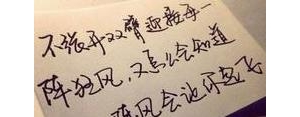 不张开双臂迎接每一
阵狂风,又怎么会知道
阵风会让你起飞